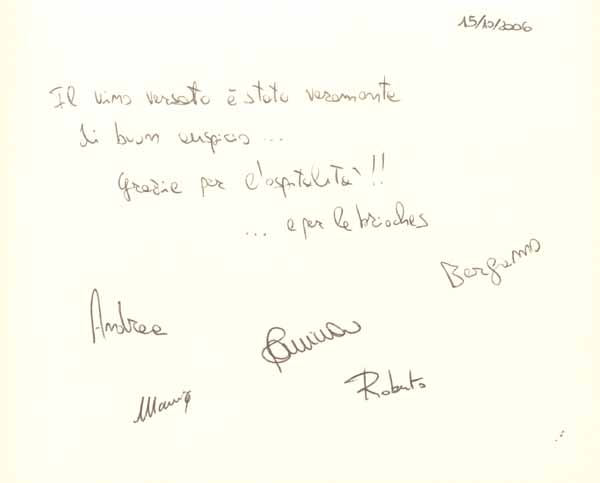 15/10/2006
Il vino versato è stato veramente
di buon auspicio ...
Grazie per l'ospitalità!!
... e per le brioches
Bergamo
Andrea
Roberto